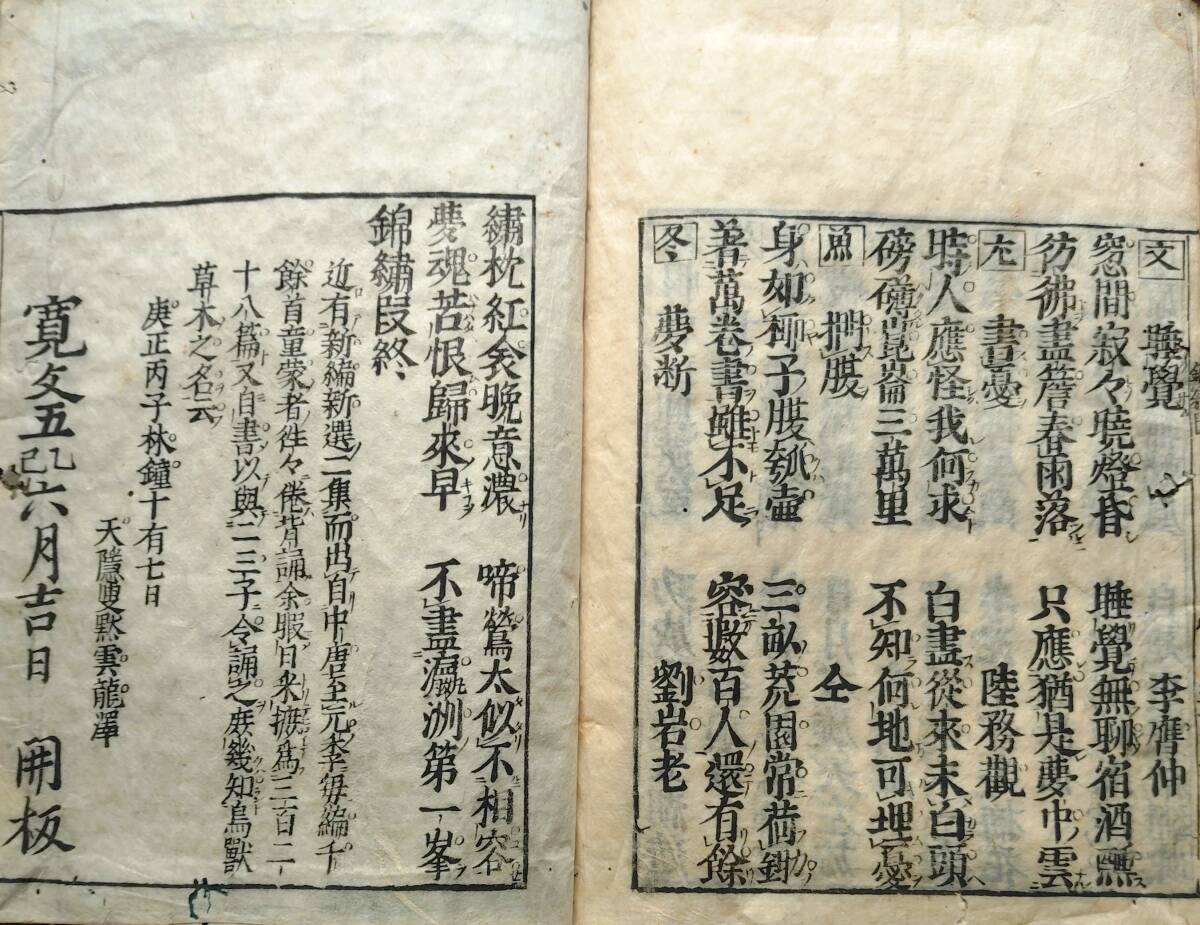 文 睡覺 李膺仲
窓間寂々曉燈昏 睡覺無聊宿酒醺
彷彿盡簷春雨落 只應猶是夢中雲
尤 書憂 陸務觀
時人應怪我何求 白盡從來未白頭
磅礴崑崙三萬里 不知何地可埋憂
魚 捫腹 仝
身如椰子腹瓠壺 三畝荒園常荷鉏
著萬卷書雖不足 容數百人還有餘
冬 夢斷 劉岩老
繡枕紅衾晩意濃 啼鶯太似不相容
夢魂苦恨歸來早 不盡瀛洲第一峯
錦繡段終
近有新編新選二集而出自中唐至元季毎編千
餘首童蒙者徃々倦背誦余暇日采摭爲三百二
十八篇又自書以與二三子令誦之庶幾知鳥獸
草木之名云
庚正丙子林鐘十有七日
天隱叟默雲龍澤
寛文五乙巳六月吉日 開板